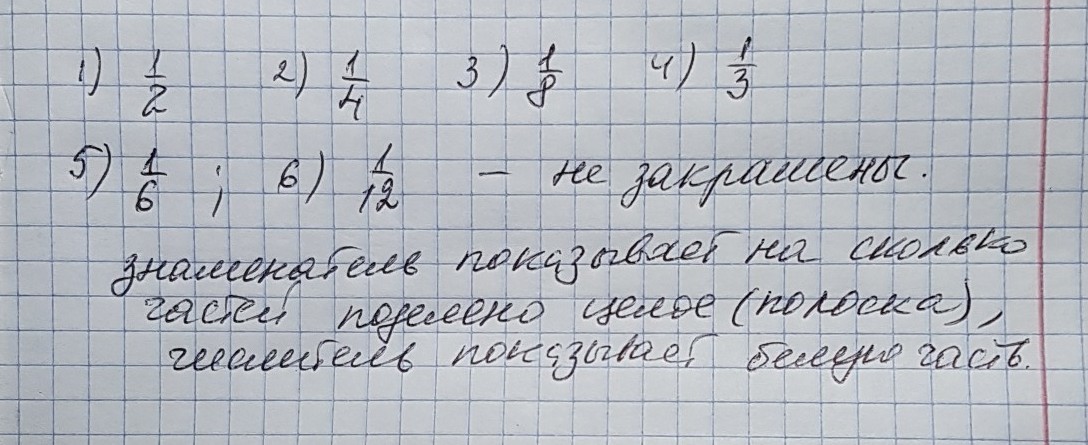 1) 1/2 2) 1/4 3) 1/8 4) 1/3
5) 1/6 ; 6) 1/12 — не закрашены.
знаменатель показывает на сколько
частей поделено целое (полоска),
числитель показывает белую часть.